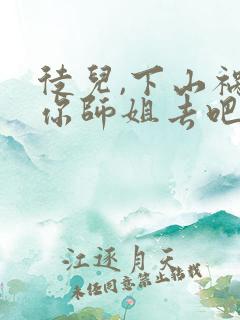 徒兒,下山祸
你師姐去吧
江逐月天
未经同意禁止转载